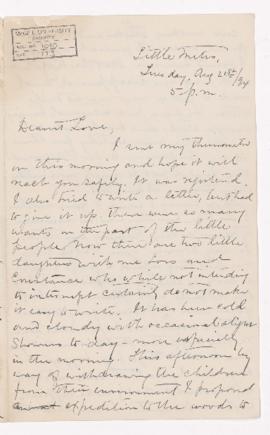 Little Metis,
Tuesday, Aug 21st/94
5 p.m.
Dearest Love,
I sent my thermometer
on this morning and hope it will
reach you safely. It was registered.
I also tried to write a letter, but had
to give it up. There were so many
wants on the part of the little
people. Now there are two little
daughters with me Lois and
Constance who while not intending
to interrupt certainly do not make
it easy to write. It has been cold
and cloudy with occasional slight
showers to-day - more especially
in the morning. This afternoon by
way of withdrawing the children
from their environment I proposed
an expedition to the woods to